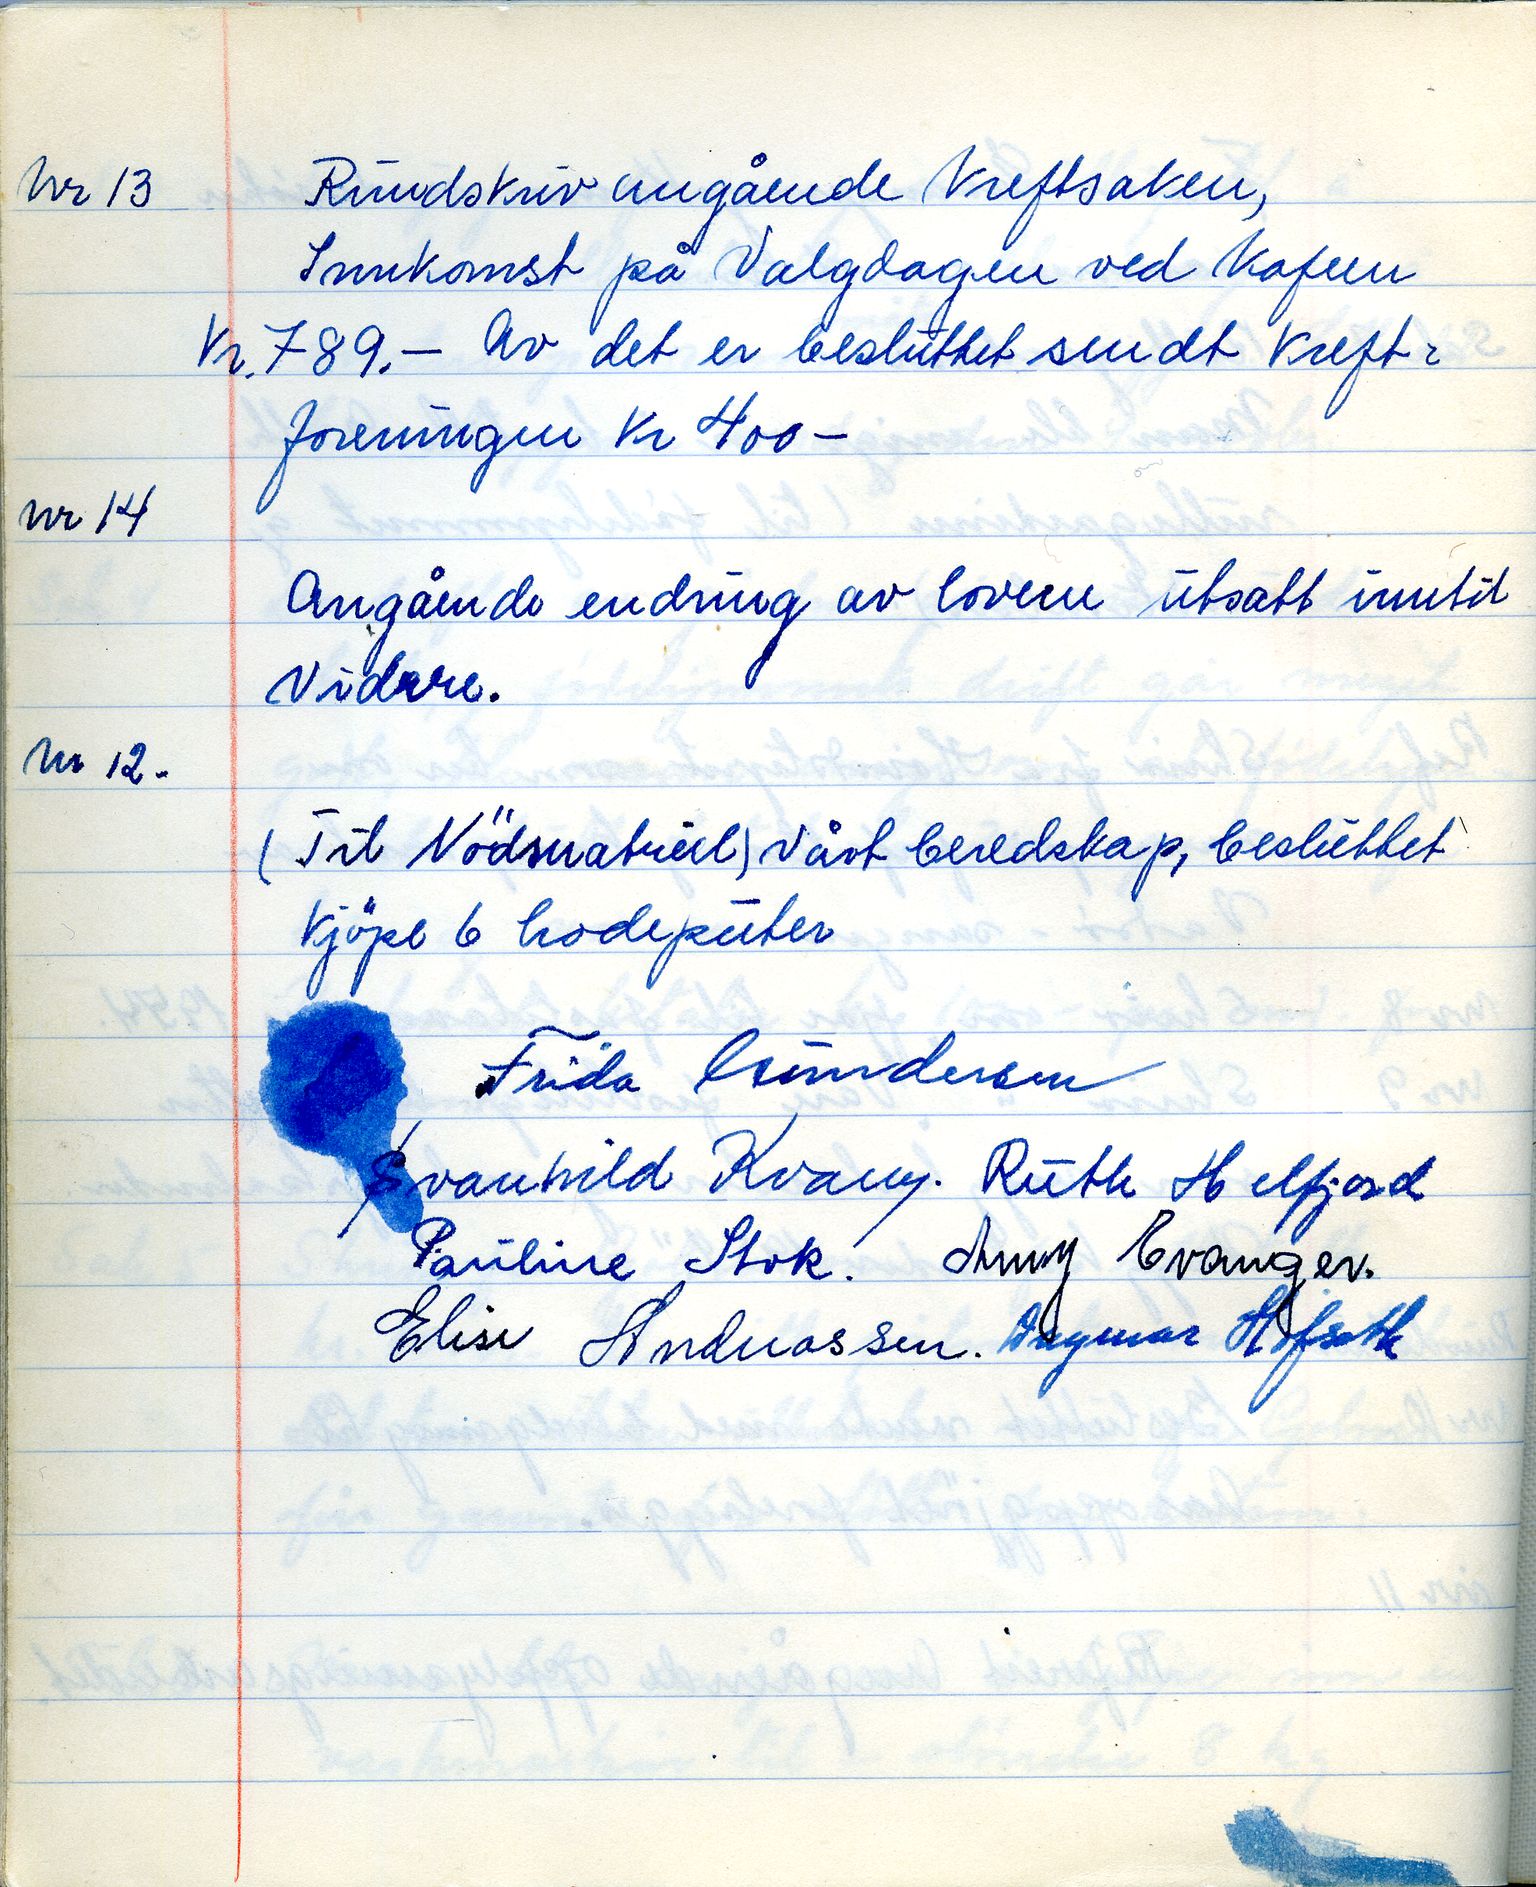 Nr 13 Rundskriv angående Kreftsaken,
Innkomst på Valgdagen ved Kafeen
Kr. 789.— Av det er besluttet sendt Kreft-
foreningen Kr 400—
Nr 14
Angående endring av lovene utsatt inntil
Videre.
Nr 12.
(Til Nödsmatriel) Vårt beredskap, besluttet
Kjöpe 6 hodeputer
Frida Gundersen
Svanhild Kvamy. Ruth Helfjord
Pauline Stok. Amy Evanger.
Elise Andreassen. Dagmar Hofseth